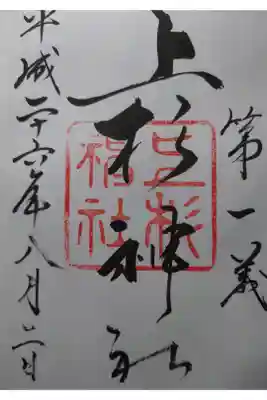 第一義
上杉神社
上杉神社
平成二十六年八月二日